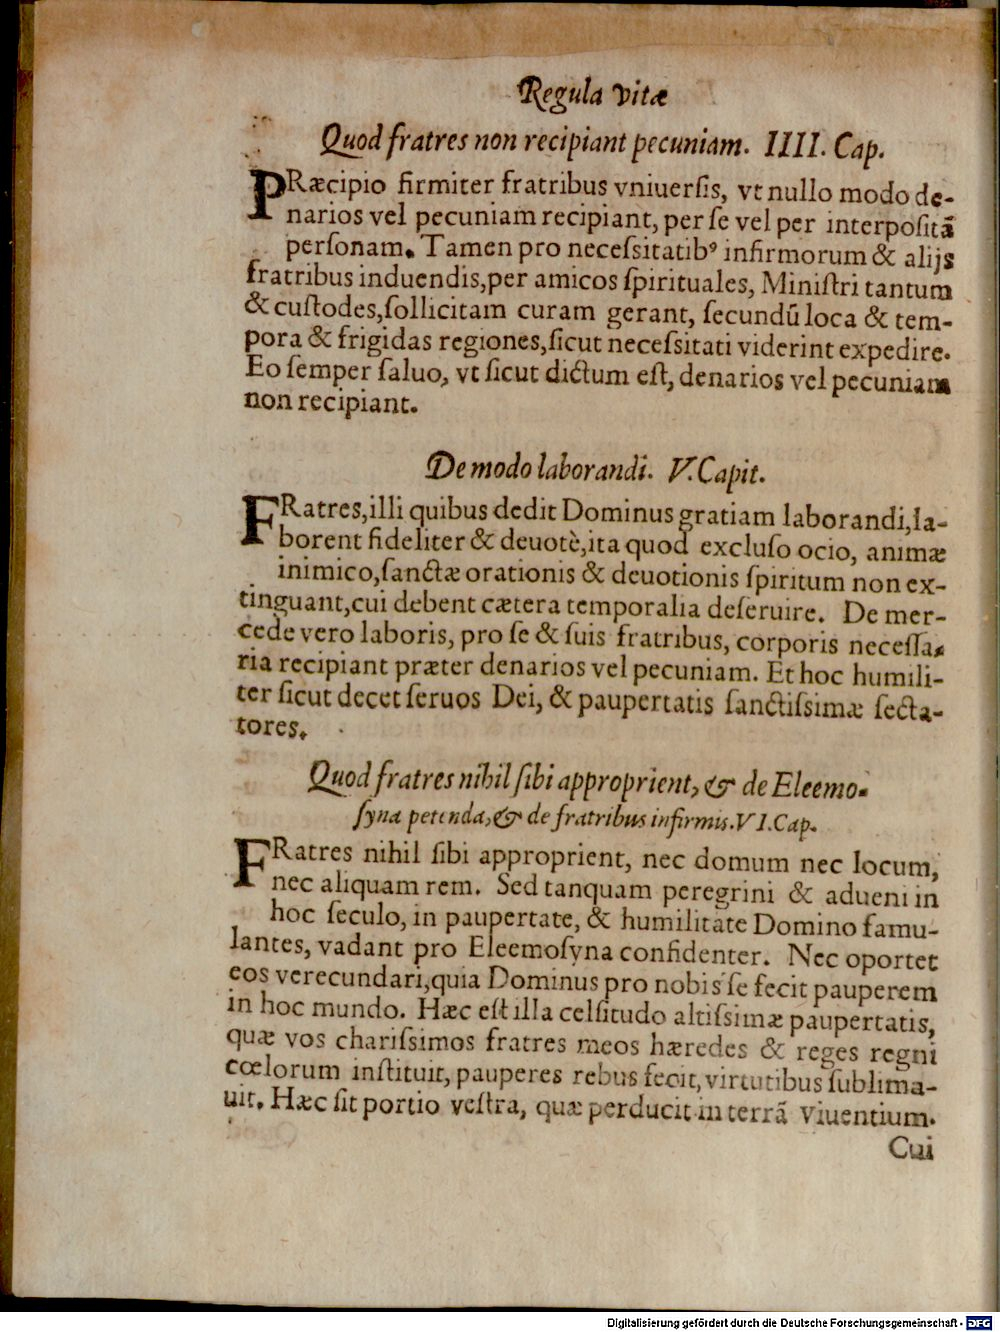 Regula vitæ
Quod fratres non recipiant pecuniam. IIII. Cap.
PRæcipio firmiter fratribus vniuerſis, vt nullo modo de-
narios vel pecuniam recipiant, per ſe vel per interpoſitã
perſonam. Tamen pro neceſsitatibꝰ infirmorum & alijs
fratribus induendis, per amicos ſpirituales, Miniſtri tantum
& cuſtodes, ſollicitam curam gerant, ſecundũ loca & tem-
pora & frigidas regiones, ſicut neceſsitati viderint expedire.
Eo ſemper ſaluo, vt ſicut dictum eſt, denarios vel pecuniam
non recipiant.
De modo laborandi. V. Capit.
FRatres, illi quibus dedit Dominus gratiam laborandi, la-
borent fideliter & deuotè, ita quod excluſo ocio, animæ
inimico, ſanctæ orationis & deuotionis ſpiritum non ex-
tinguant, cui debent cætera temporalia deſeruire. De mer-
cede vero laboris, pro ſe & ſuis fratribus, corporis neceſſa-
ria recipiant præter denarios vel pecuniam. Et hoc humili-
ter ſicut decet ſeruos Dei, & paupertatis ſanctiſsimæ ſecta-
tores.
Quod fratres nihil ſibi approprient, & de Eleemo-
ſyna petenda, & de fratribus infirmis. VI. Cap.
FRatres nihil ſibi approprient, nec domum nec locum,
nec aliquam rem. Sed tanquam peregrini & adueni in
hoc ſeculo, in paupertate, & humilitate Domino famu-
lantes, vadant pro Eleemoſyna confidenter. Nec oportet
eos verecundari, quia Dominus pro nobis ſe fecit pauperem
in hoc mundo. Hæc eſt illa celſitudo altiſsimæ paupertatis,
quæ vos chariſsimos fratres meos hæredes & reges regni
cœlorum inſtituit, pauperes rebus fecit, virtutibus ſublima-
uit. Hæc ſit portio veſtra, quæ perducit in terrã viuentium.
Cui
Digitalisierung gefördert durch die Deutsche Forschungsgemeinschaft - DFG